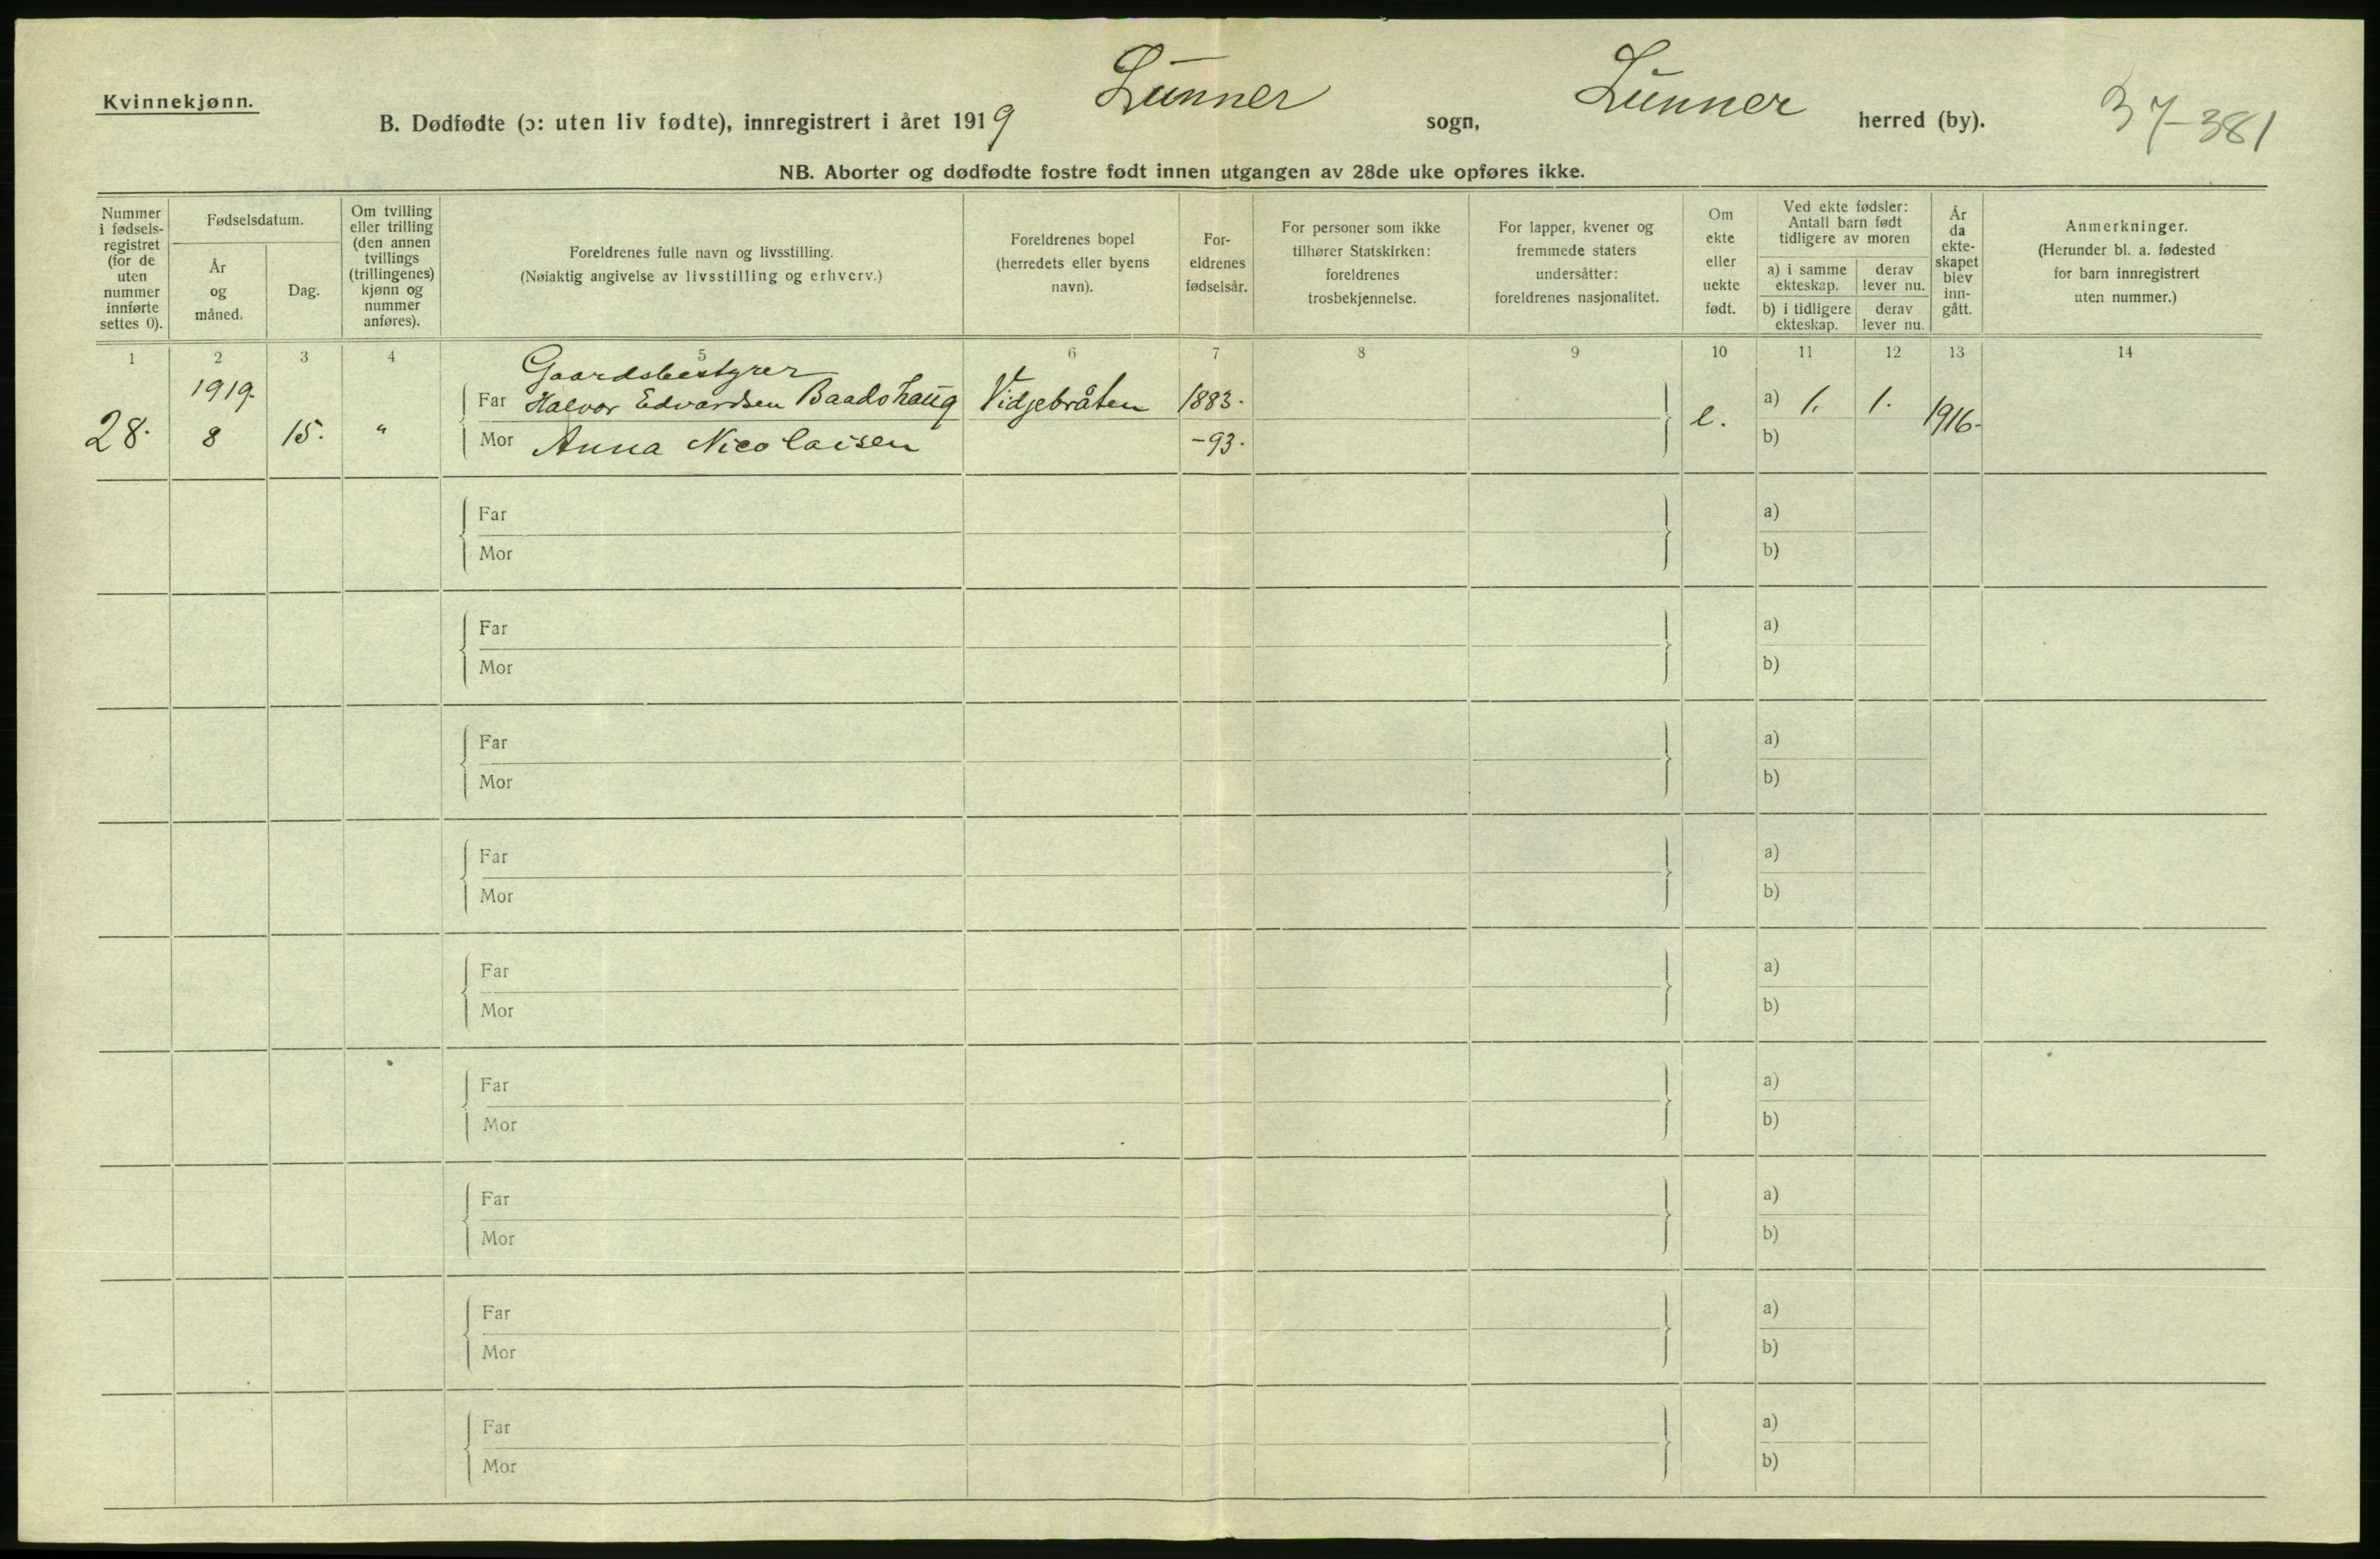 Kvinnekjønn.
B. Dødfødte (ɔ: uten liv fødte), innregistrert i året 1919 Lunner sogn, Lunner herred (by).
37-381
NB. Aborter og dødfødte fostre født innen utgangen av 28de uke opføres ikke.
Nummer i fødsels-registret (for de uten nummer innførte settes 0).
Fødselsdatum.
År og måned.
Dag.
Om tvilling eller trilling (den annen tvillings (trillingenes) kjønn og nummer anføres).
Foreldrenes fulle navn og livsstilling.
(Nøiaktig angivelse av livsstilling og erhverv.)
Foreldrenes bopel (herredets eller byens navn).
For-eldrenes fødselsår.
For personer som ikke tilhører Statskirken: foreldrenes trosbekjennelse.
For lapper, kvener og fremmede staters undersåtter: foreldrenes nasjonalitet.
Om ekte eller uekte født.
Ved ekte fødsler: Antall barn født tidligere av moren
a) i samme ekteskap.
derav lever nu.
b) i tidligere ekteskap.
derav lever nu.
År da ekte-skapet blev inn-gått.
Anmerkninger.
(Herunder bl. a. fødested for barn innregistrert uten nummer.)
1 2 3 4 5 6 7 8 9 10 11 12 13 14
1919. Gaardsbestyrer
Far Halvor Edvardsen Baadshaug Vidjebråten 1883. a) 1. 1.
28. 8 15. " e. 1916.
Mor Anna Nicolaisen -93. b)
Far a)
Mor b)
Far a)
Mor b)
Far a)
Mor b)
Far a)
Mor b)
Far a)
Mor b)
Far a)
Mor b)
Far a)
Mor b)
Far a)
Mor b)
Far a)
Mor b)